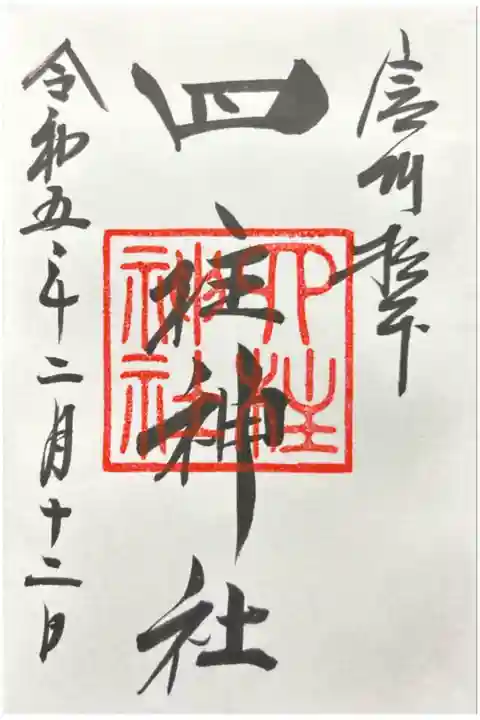 信州松本
四柱神社
四柱神社
令和五年二月十二日